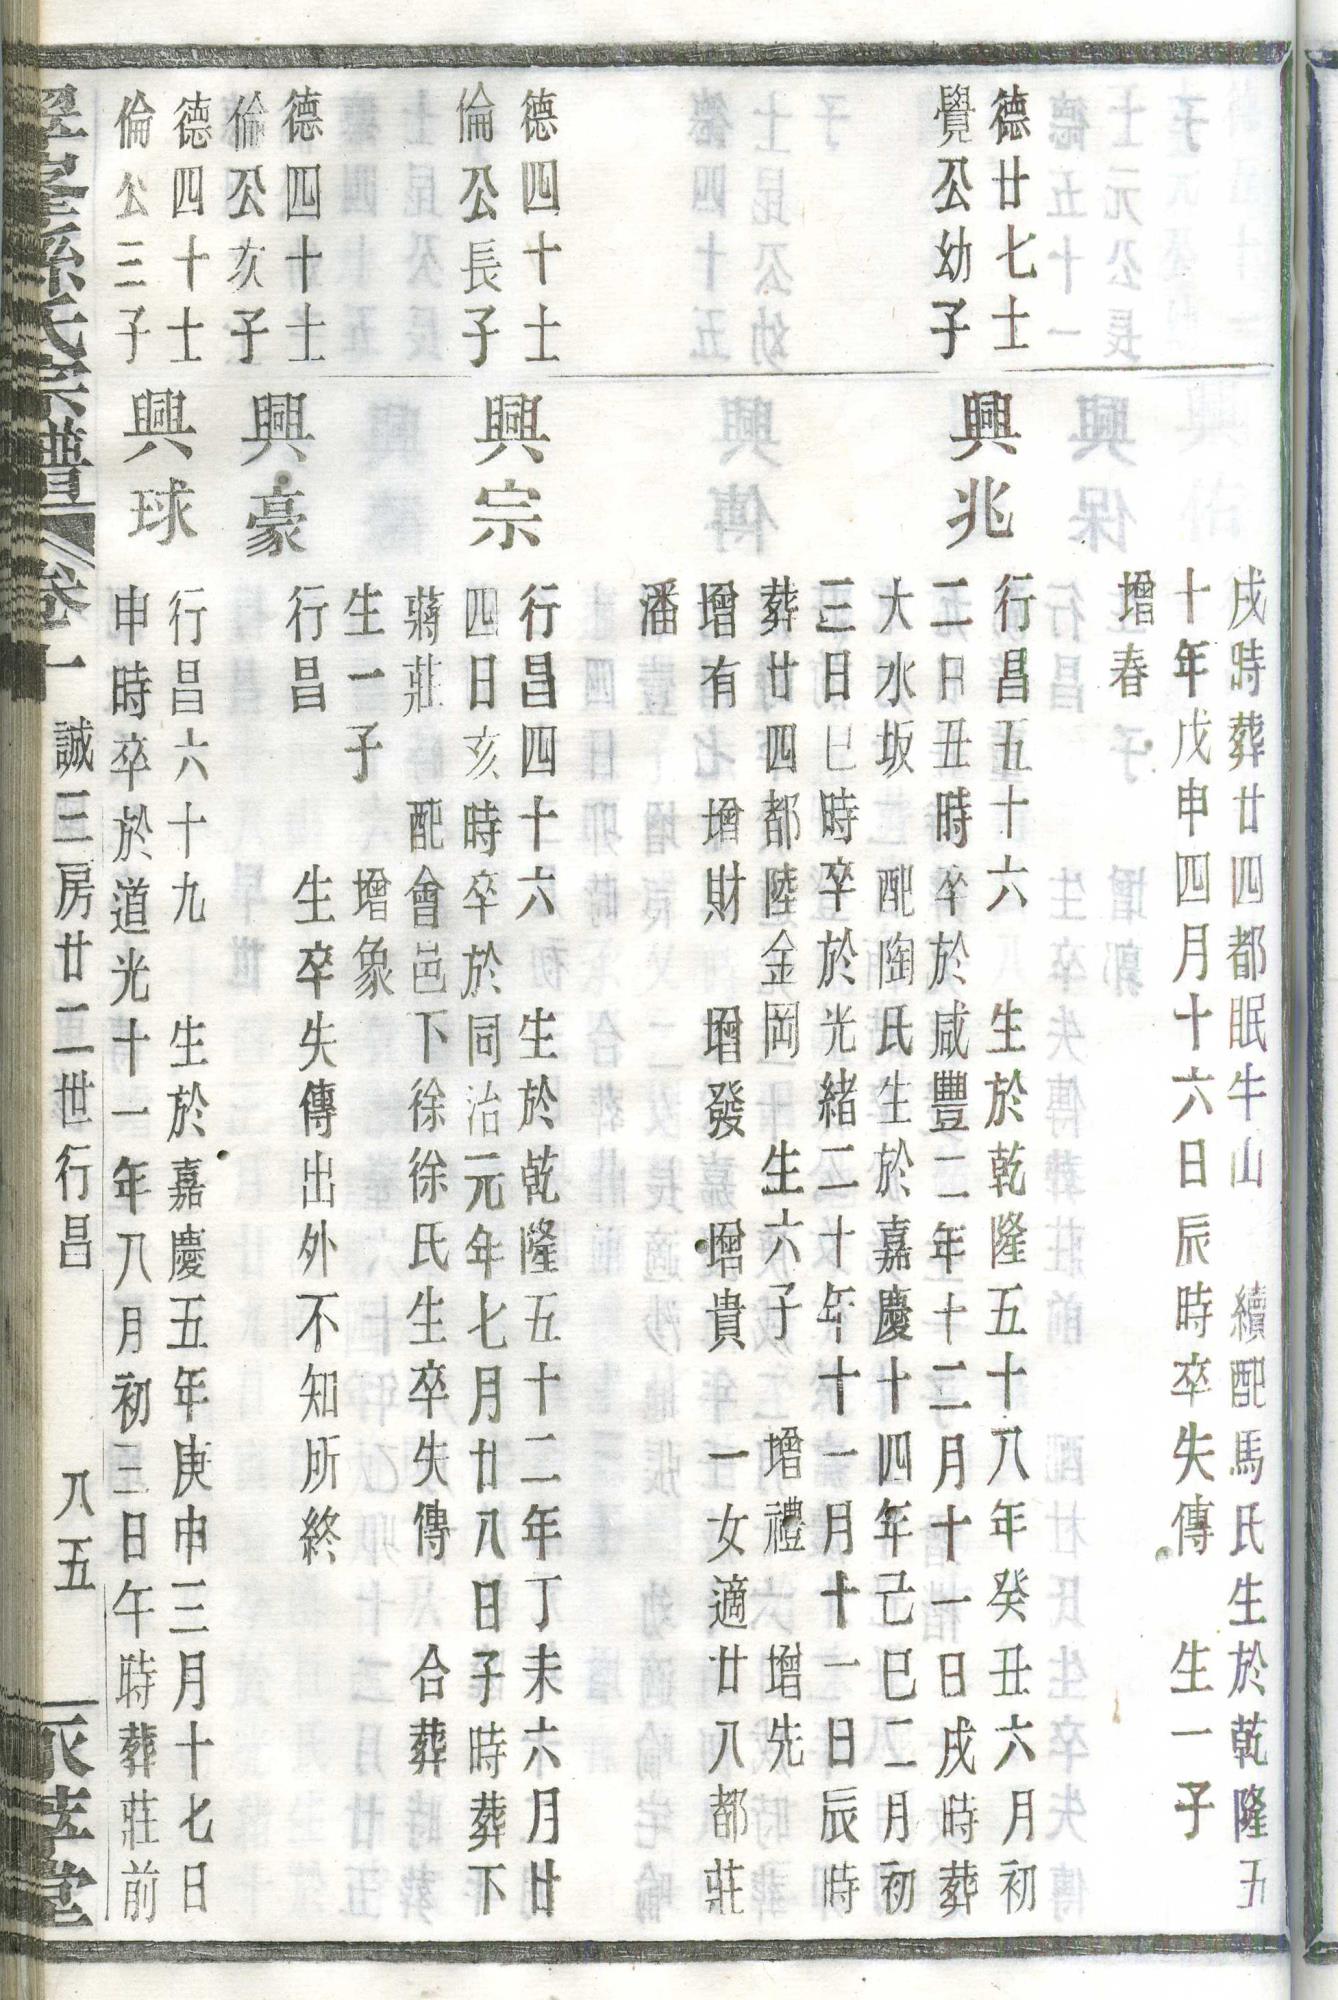 戌時葬廿四都眠牛山 續配馬氏生於乾隆五
十年戊申四月十六日辰時卒失傳 生一子
增春
德廿七士
覺公幼子
興兆
行昌五十六 生於乾隆五十八年癸丑六月初
二日丑時卒於咸豐二年十二月十一日戌時葬
大水坂 配陶氏生於嘉慶十四年己巳二月初
三日巳時卒於光緒二十年十一月十一日辰時
葬廿四都陸金岡 生六子 增禮 增先
增有 增財 增發 增貴 一女適廿八都莊
潘
德四十士
倫公長子
興宗
行昌四十六 生於乾隆五十二年丁未六月廿
四日亥時卒於同治元年七月廿八日子時葬下
蔣莊 配會邑下徐徐氏生卒失傳 合葬
生一子 增象
德四十士
倫公亥子
興豪
行昌 生卒失傳出外不知所終
德四十士
倫公三子
興球
行昌六十九 生於嘉慶五年庚申三月十七日
申時卒於道光十一年八月初三日午時葬莊前
孫氏宗譜 卷十 誠三房廿二世行昌 八五 堂